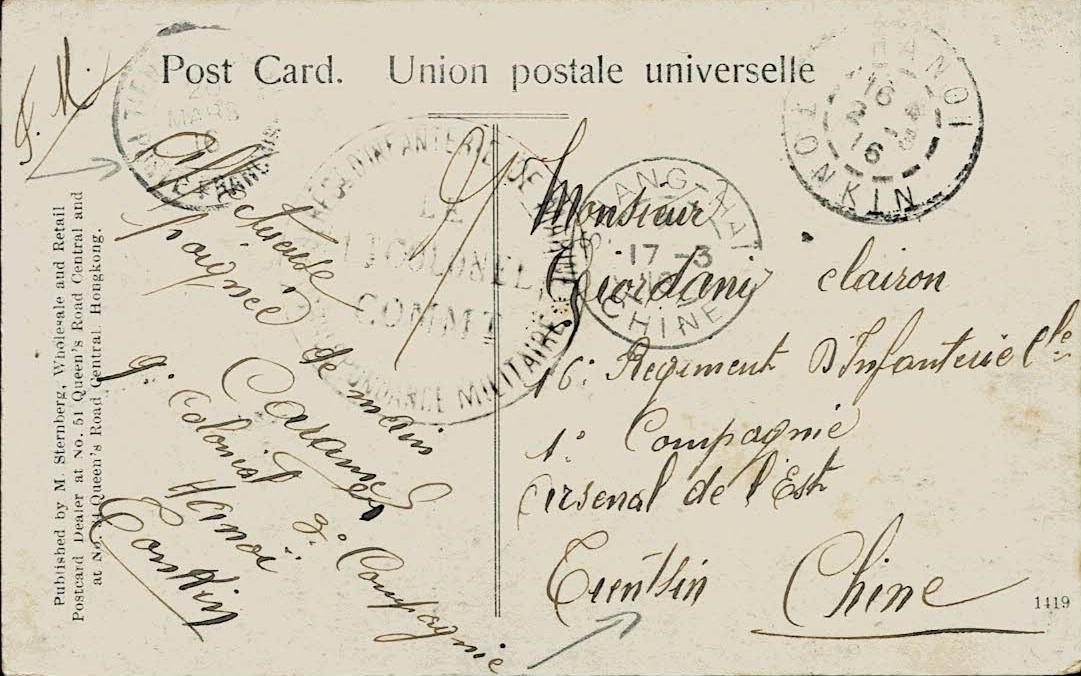 Post Card. Union postale universelle
F. M.
Affectueuse
poignée
de main
9e Colonial
Hanoï
Tonkin
3e Compagnie
Monsieur
Giordani clairon
16e Regiment D'Infanterie Cle
1e Compagnie
Arsenal de l'Est
Tientsin Chine
HANOI
16
16
TONKIN
SHANG-HAI
17 -3
CHINE
MARS
D'INFANTERIE
LE
LT COLONEL
COMMT
CORRESPONDANCE MILITAIRE
Published by M. Sternberg, Wholesale and Retail
Postcard Dealer at No. 51 Queen's Road Central and
at No. Queen's Road Central. Hongkong.
1419